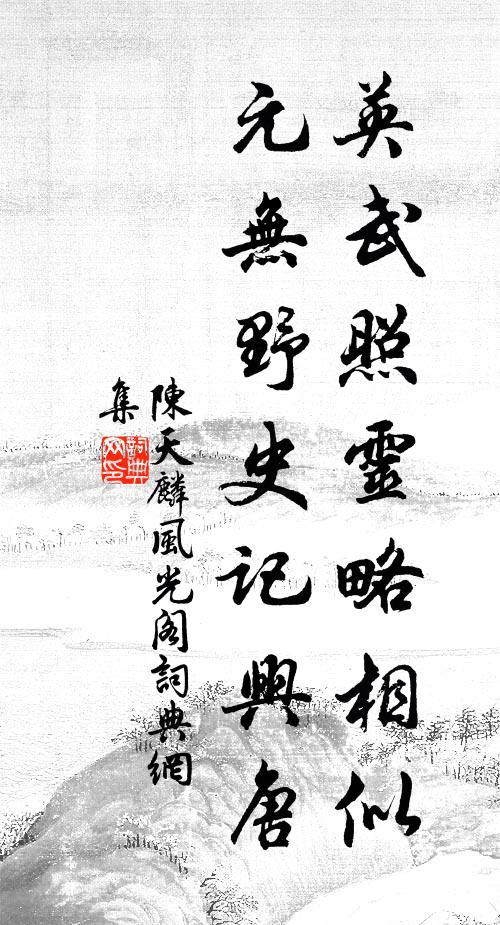 英武照靈略相似
元無野史記興唐
陳天麟風光阁詞典網
集
詞典
网印